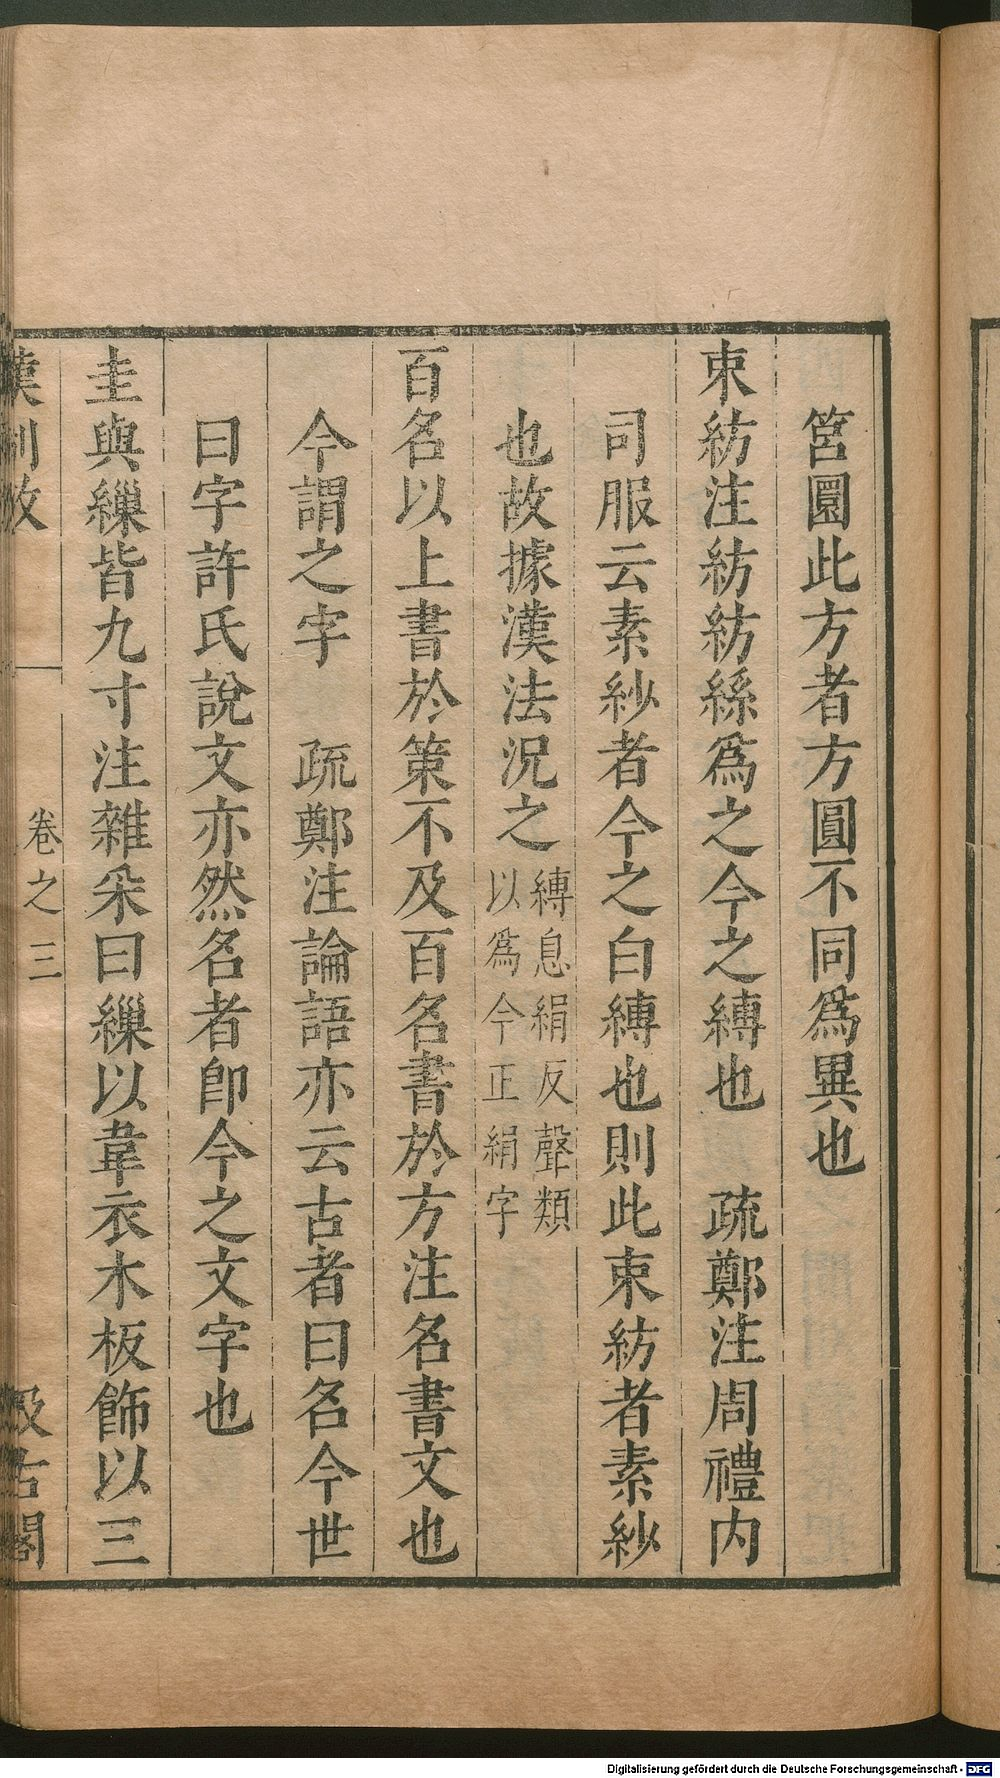 筥圜此方者方圓不同為異也
束紡注紡紡絲為之今之縳也　疏鄭注周禮內
司服云素紗者今之白縳也則此束紡者素紗
也故據漢法況之縳息絹反聲類
以為今正絹字
百名以上書於策不及百名書於方注名書文也
今謂之字　疏鄭注論語亦云古者曰名今世
曰字許氏說文亦然名者即今之文字也
圭與繅皆九寸注雜朵曰繅以韋衣木板飾以三
漢制攷　卷之三　汲古閣
Digitalisierung gefördert durch die Deutsche Forschungsgemeinschaft - DFG